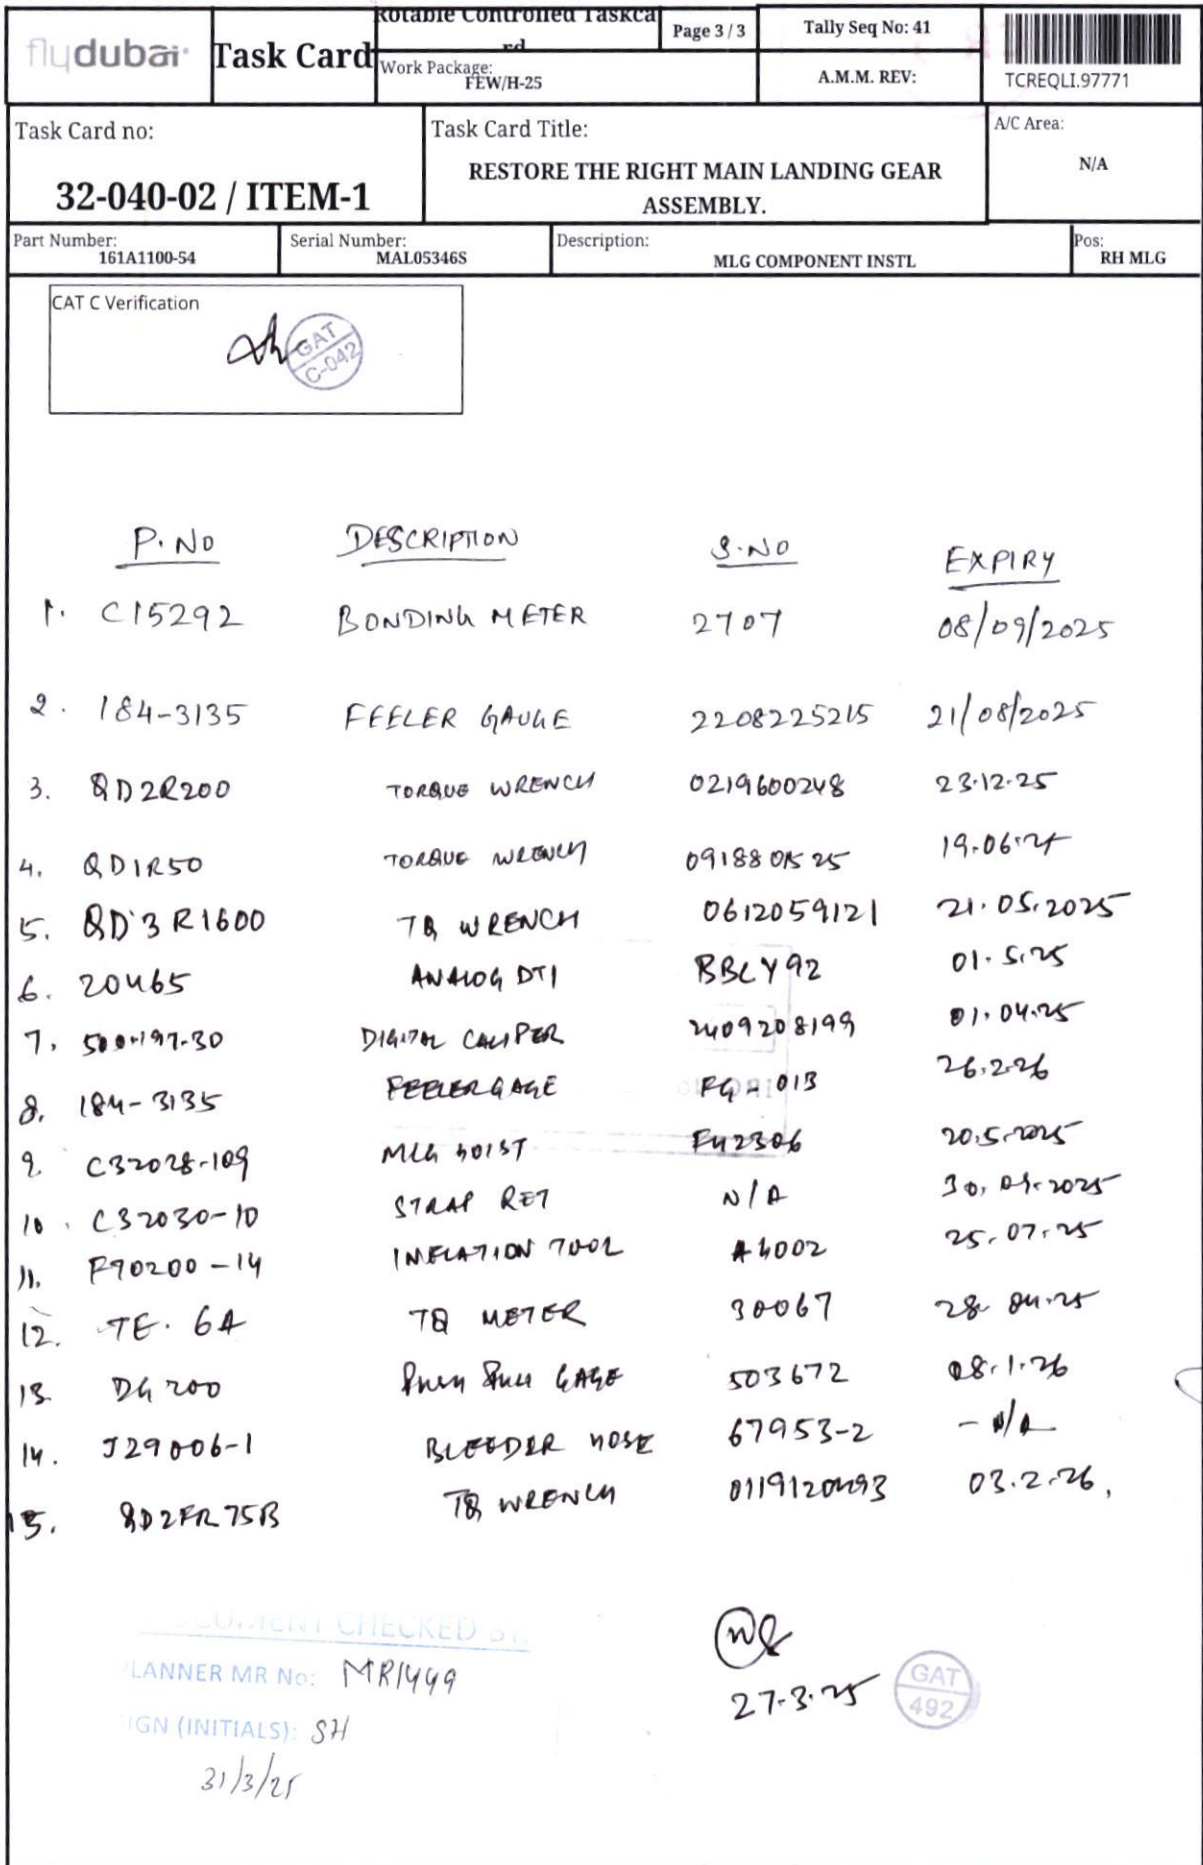 flydubai
Task Card
Rotable Controlled Taskca
rd
Page 3 / 3
Tally Seq No: 41
Work Package:
FEW/H-25
A.M.M. REV:
TCREQLI.97771
Task Card no:
32-040-02 / ITEM-1
Task Card Title:
RESTORE THE RIGHT MAIN LANDING GEAR
ASSEMBLY.
A/C Area:
N/A
Part Number:
161A1100-54
Serial Number:
MAL05346S
Description:
MLG COMPONENT INSTL
Pos:
RH MLG
CAT C Verification
GAT
C-042
P.NO DESCRIPTION S.NO EXPIRY
1. C15292 BONDING METER 2707 08/09/2025
2. 184-3135 FEELER GAUGE 2208225215 21/08/2025
3. QD2R200 TORQUE WRENCH 0219600248 23.12.25
4. QD1R50 TORQUE WRENCH 19.06.25
5. QD3R1600 TQ WRENCH 0612059121 21.05.2025
6. 20465 ANALOG DTI BBLY92 01.5.25
7. 500-197-30 DIGITAL CALIPER 2409208199 01.04.25
8. 184-3135 FEELER GAGE FG-013 26.2.26
9. C32028-109 MLG HOIST FH2306 20.5.2025
10. C32030-10 STRAP RET N/A 2025
11. F70200-14 INFLATION TOOL A4002 25.07.25
12. TE.6A TQ METER 30067 28.04.25
13. DG200 PUSH PULL GAGE 503672 08.1.26
14. J29006-1 BLEEDER HOSE 67953-2 - N/A
15. QD2FR75B TQ WRENCH 03.2.26,
DOCUMENT CHECKED BY:
PLANNER MR No: MR1449
SIGN (INITIALS): SH
31/3/25
27.3.25
GAT
492